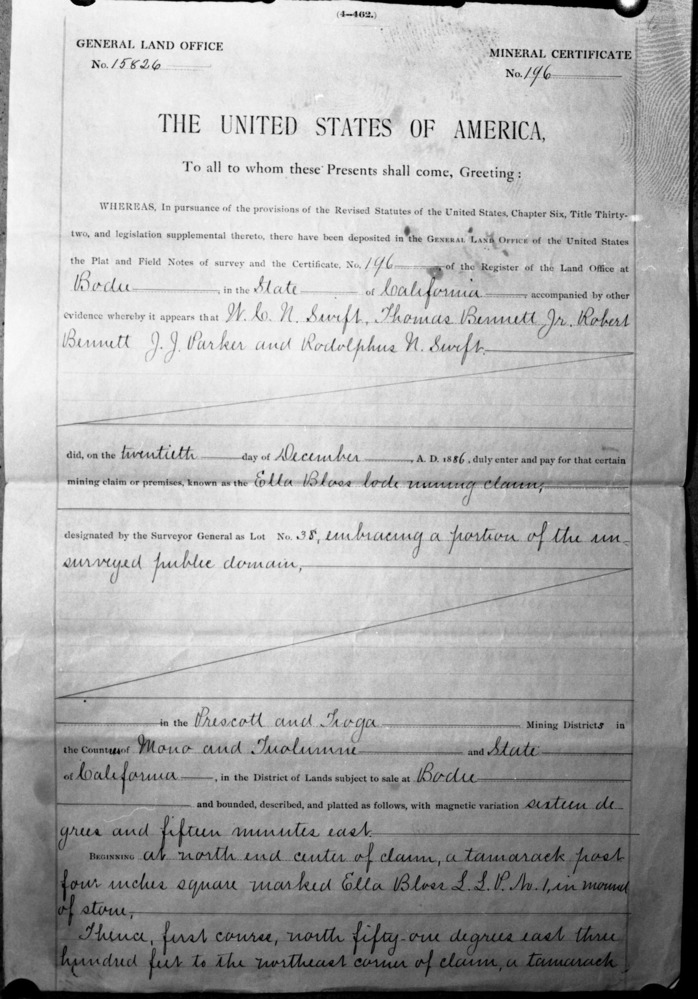 (4—462.)
GENERAL LAND OFFICE
No. 15826
MINERAL CERTIFICATE
No. 196
THE UNITED STATES OF AMERICA,
To all to whom these Presents shall come, Greeting:
WHEREAS, In pursuance of the provisions of the Revised Statutes of the United States, Chapter Six, Title Thirty-
two, and legislation supplemental thereto, there have been deposited in the GENERAL LAND OFFICE of the United States
the Plat and Field Notes of survey and the Certificate, No. 196, of the Register of the Land Office at
Bodie, in the State of California, accompanied by other
evidence whereby it appears that W. C. N. Swift, Thomas Bennett Jr. Robert
Bennett J. J. Parker and Rodolphus N. Swift.
did, on the twentieth day of December, A. D. 1886, duly enter and pay for that certain
mining claim or premises, known as the Ella Bloss lode mining claim,
designated by the Surveyor General as Lot No. 38, embracing a portion of the un-
surveyed public domain,
in the Prescott and Tioga Mining Districts in
the Counties of Mono and Tuolumne and State
of California, in the District of Lands subject to sale at Bodie
and bounded, described, and platted as follows, with magnetic variation sixteen de-
grees and fifteen minutes east.
BEGINNING at north end center of claim, a tamarack post
four inches square marked Ella Bloss L. L. P. No. 1, in mound
of stone,
Thence, first course, north fifty-one degrees east three
hundred feet to the northeast corner of claim, a tamarack